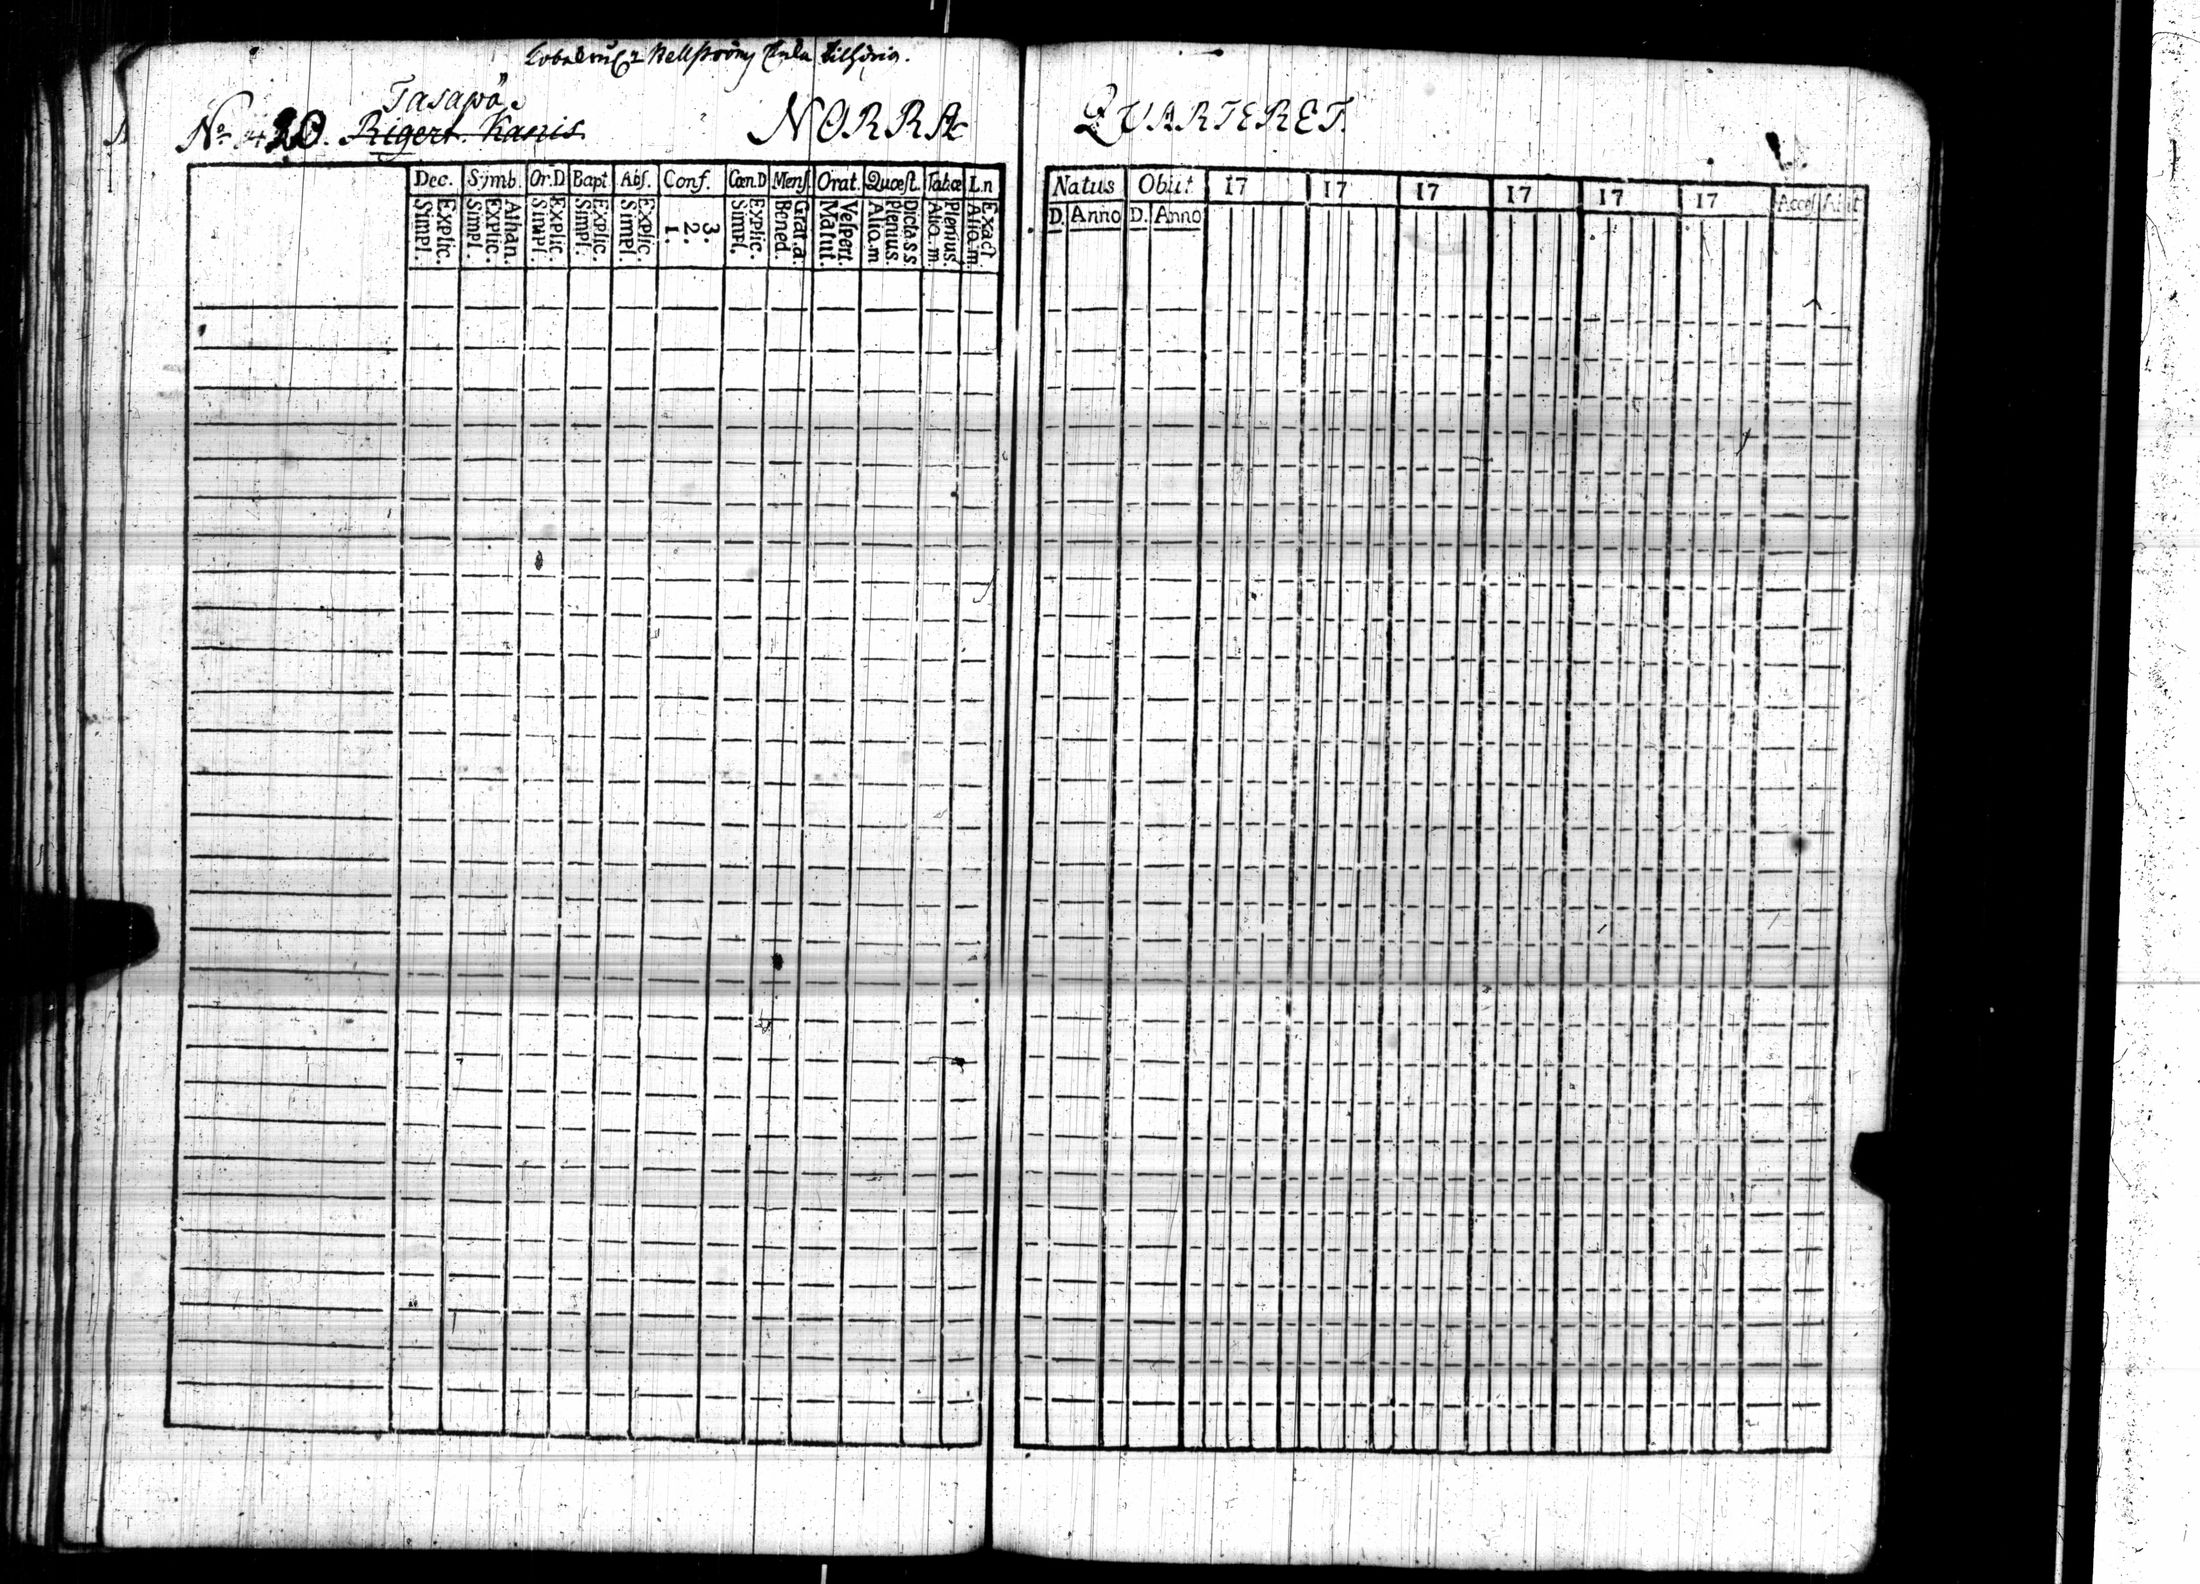 tilhörig.
Tasapö
No 20. Rigert. Kanis NORRA QVARTERET.
Dec. Symb. Or.D Bapt Abs. Conf. Cœn.D Mens. Orat. Quæst. Tabæ L.n
Simpl. Explic. Simpl. Explic. Athan. Simpl. Explic. Simpl. Explic. Simpl. Explic. 1. 2. 3. Simpl. Explic. Bened. Grat.a. Matut. Vespert. Alio.m Plenius. Dicta.s.s. Alio.m. Plenius. Alio.m. Exact.
Natus Obiit 17 17 17 17 17 17 Acces Abit
D. Anno D. Anno